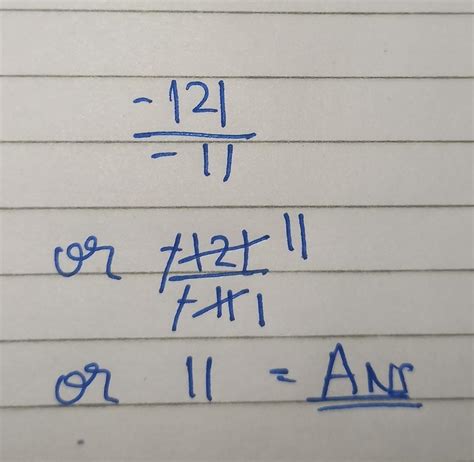 -121
- 11
or -121 11
-11 1
or 11 = Ans